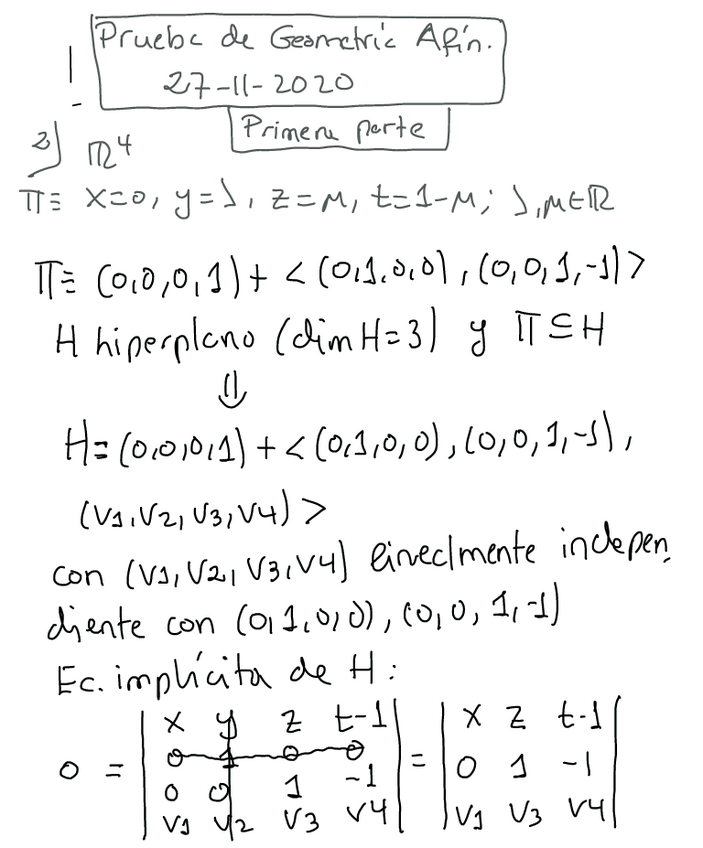 Prueba de Geometría Afín.
27-11-2020
Primera parte
2) ℝ⁴
Π≡ x=0, y=λ, z=μ, t=1-μ; λ,μ∈ℝ
Π≡ (0,0,0,1)+<(0,1,0,0),(0,0,1,-1)>
H hiperplano (dim H=3) y Π⊆H
⇓
H=(0,0,0,1)+<(0,1,0,0),(0,0,1,-1),
(v1,v2,v3,v4)>
con (v1,v2,v3,v4) linealmente indepen
diente con (0,1,0,0),(0,0,1,-1)
Ec. implícita de H:
| x y z t-1 | | x z t-1 |
| 0 1 0 0 | | 0 1 -1 |
0 = | 0 0 1 -1 | = | v1 v3 v4 |
| v1 v2 v3 v4 |